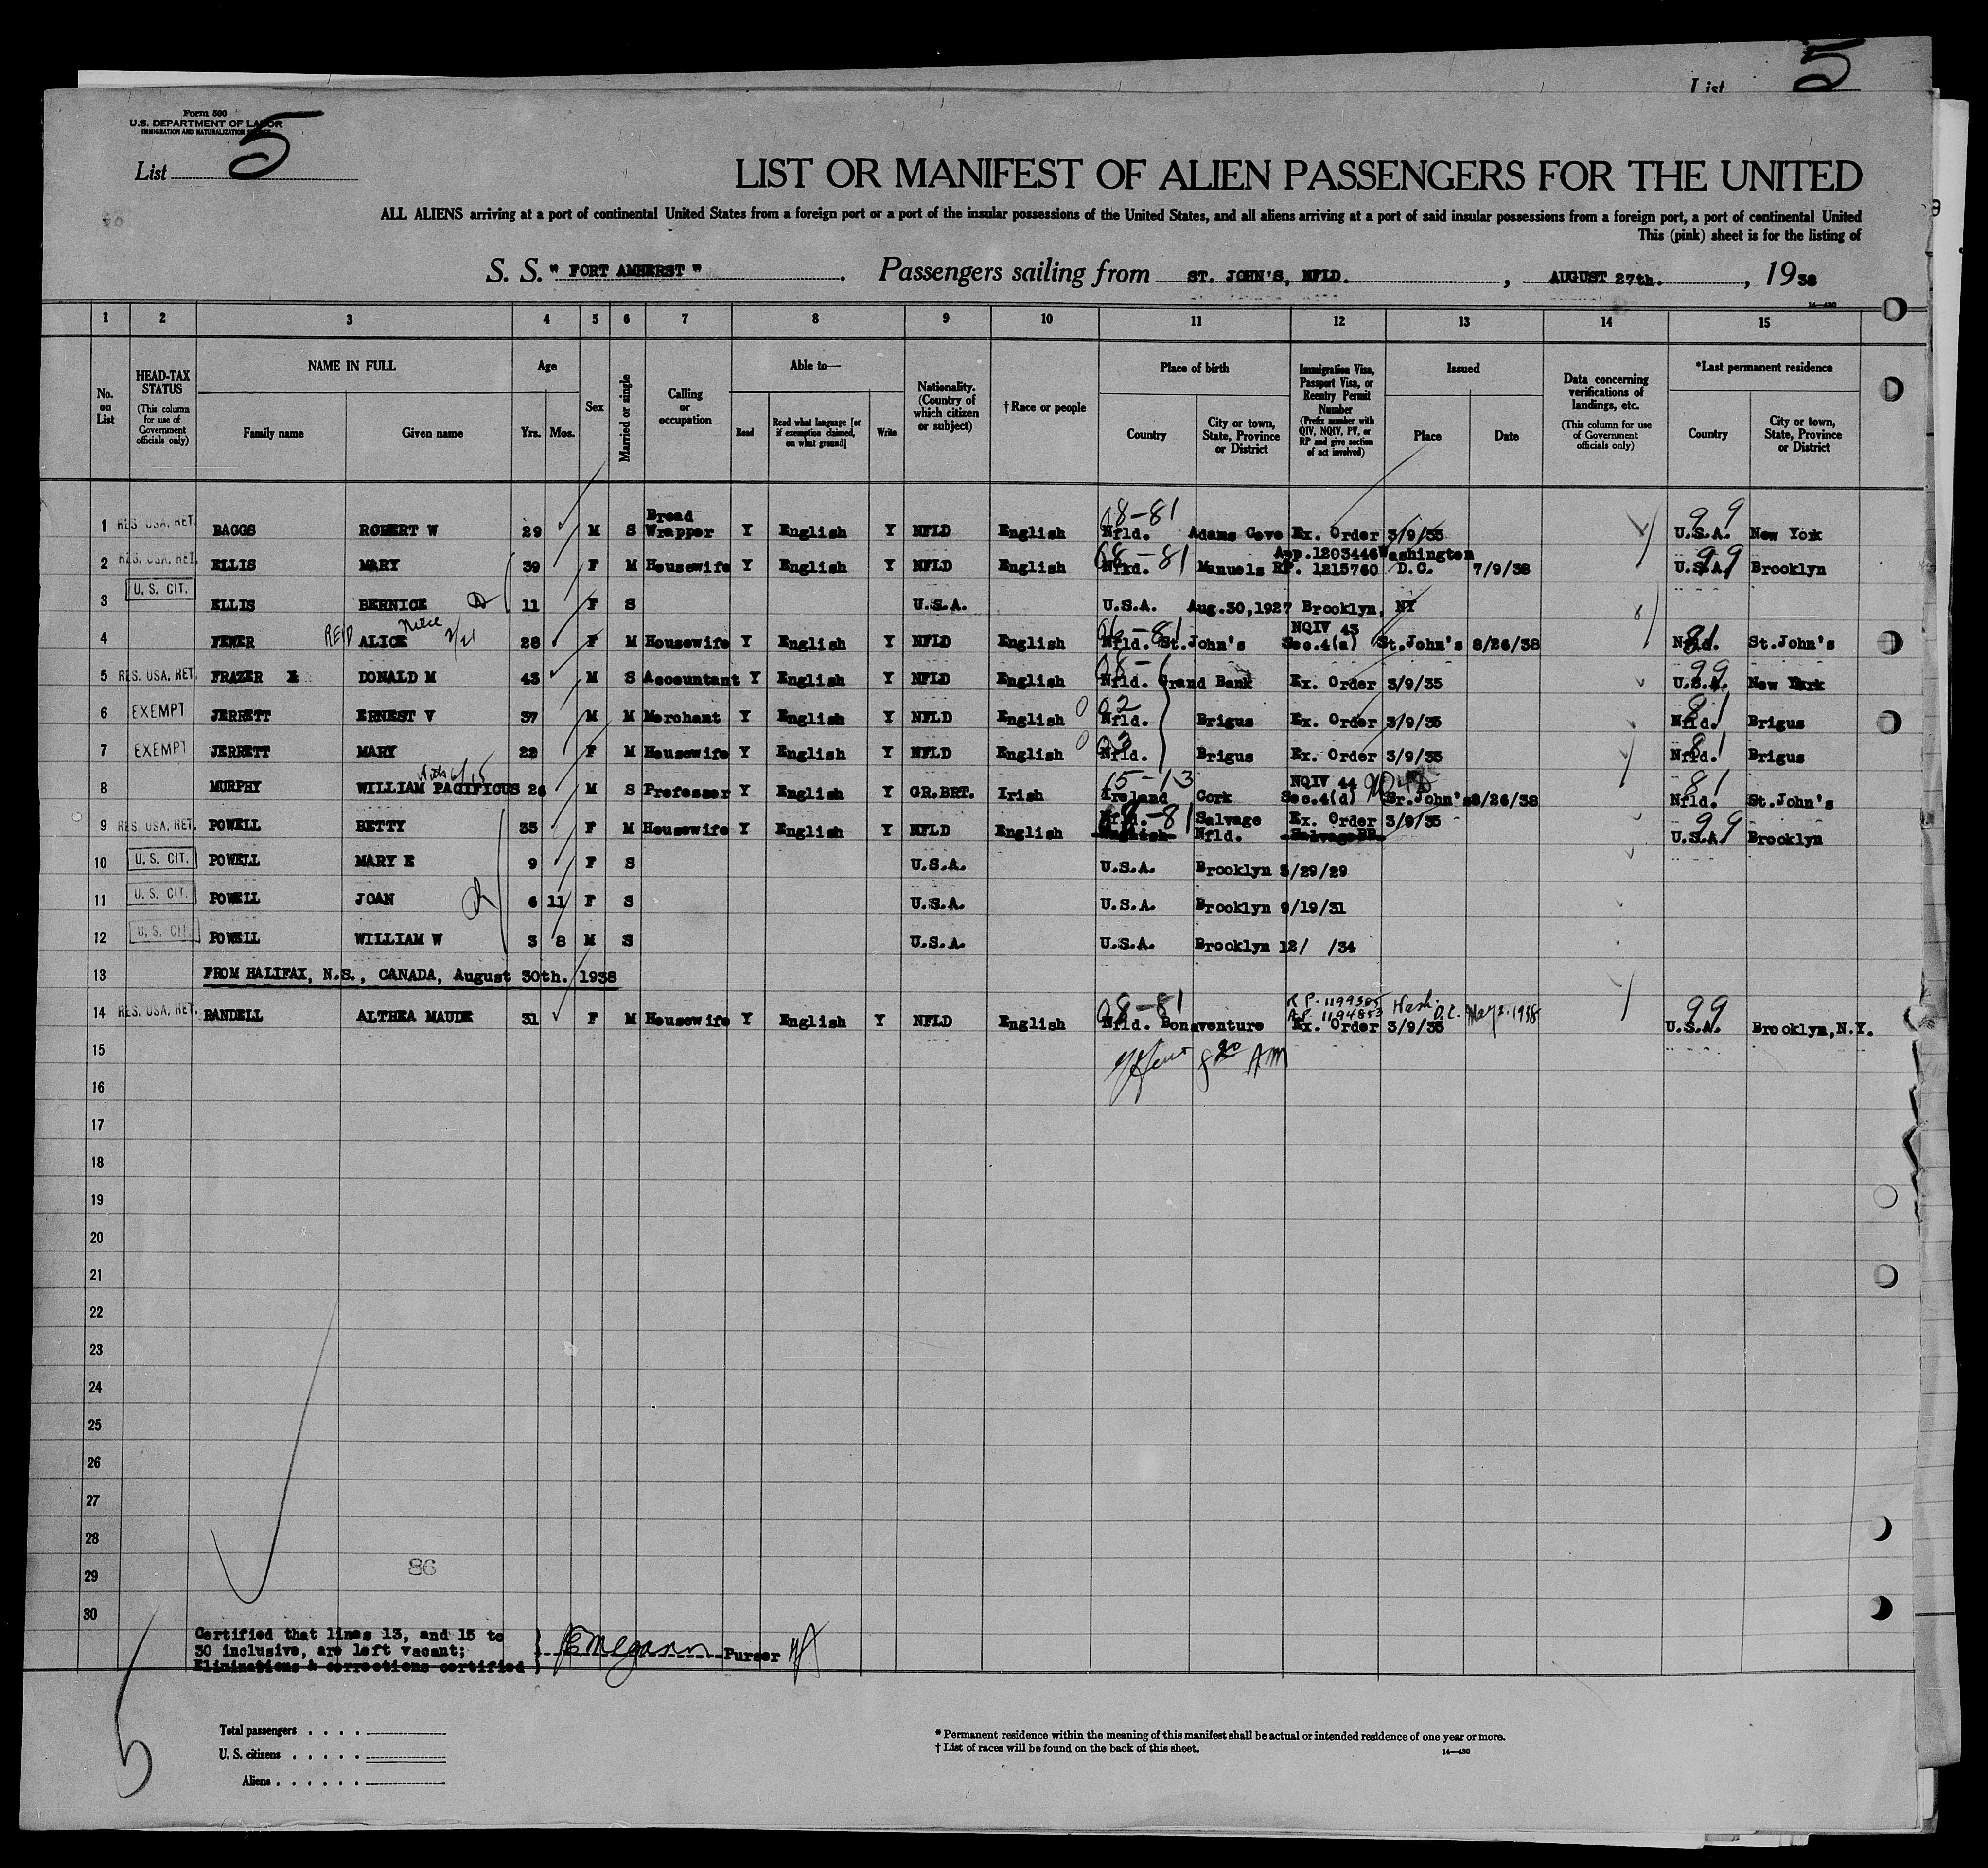 List 5
Form 500
U.S. DEPARTMENT OF LABOR
IMMIGRATION AND NATURALIZATION
List 5
LIST OR MANIFEST OF ALIEN PASSENGERS FOR THE UNITED
ALL ALIENS arriving at a port of continental United States from a foreign port or a port of the insular possessions of the United States, and all aliens arriving at a port of said insular possessions from a foreign port, a port of continental United
This (pink) sheet is for the listing of
S. S. " FORT AMHERST " . Passengers sailing from ST. JOHN'S, NFLD. , AUGUST 27th. , 1938
14—430
1 2 3 4 5 6 7 8 9 10 11 12 13 14 15
No. on List
HEAD-TAX STATUS (This column for use of Government officials only)
NAME IN FULL Family name Given name
Age Yrs. Mos.
Sex
Married or single
Calling or occupation
Able to— Read Read what language [or if exemption claimed, on what ground] Write
Nationality. (Country of which citizen or subject)
†Race or people
Place of birth Country City or town, State, Province or District
Immigration Visa, Passport Visa, or Reentry Permit Number (Prefix number with QIV, NQIV, PV, or RP and give section of act involved)
Issued Place Date
Data concerning verifications of landings, etc. (This column for use of Government officials only)
*Last permanent residence Country City or town, State, Province or District
08-81 99
1 RES. USA, RET. BAGGS ROBERT W 29 M S Bread Wrapper Y English Y NFLD English Nfld. Adams Cove Ex. Order 3/9/35 U.S.A. New York
08-81 App.1203446 Washington 99
2 RES. USA, RET. ELLIS MARY 39 F M Housewife Y English Y NFLD English Nfld. Manuels RP. 1215760 D.C. 7/9/38 U.S.A. Brooklyn
3 U.S. CIT. ELLIS BERNICE 11 F S U.S.A. U.S.A. Aug.30,1927 Brooklyn, NY
NQIV 43 81
4 FEWER REID ALICE 28 F M Housewife Y English Y NFLD English Nfld. St.John's Sec.4(a) St.John's 8/26/38 Nfld. St.John's
08- 99
5 RES. USA, RET. FRAZER DONALD M 43 M S Accountant Y English Y NFLD English Nfld. Grand Bank Ex. Order 3/9/35 U.S.A. New York
02 81
6 EXEMPT JERRETT ERNEST V 37 M M Merchant Y English Y NFLD English Nfld. Brigus Ex. Order 3/9/35 Nfld. Brigus
81
7 EXEMPT JERRETT MARY 22 F M Housewife Y English Y NFLD English Nfld. Brigus Ex. Order 3/9/35 Nfld. Brigus
15-13 NQIV 44 81
8 MURPHY WILLIAM PACIFICUS 26 M S Professor Y English Y GR.BRT. Irish Ireland Cork Sec.4(d) St.John's 8/26/38 Nfld. St.John's
9 RES. USA, RET. POWELL BETTY 35 F M Housewife Y English Y NFLD English Nfld. -81 Salvage Nfld. Ex. Order 3/9/35 99 U.S.A. Brooklyn
10 U.S. CIT. POWELL MARY E 9 F S U.S.A. U.S.A. Brooklyn 3/29/29
11 U.S. CIT. POWELL JOAN 6 11 F S U.S.A. U.S.A. Brooklyn 9/19/31
12 U.S. CIT. POWELL WILLIAM W 3 8 M S U.S.A. U.S.A. Brooklyn 12/ /34
13 FROM HALIFAX, N.S., CANADA, August 30th. 1938
08-81 R.P. 1199385 Wash. D.C. May 2, 1938 99
14 RES. USA, RET. RANDELL ALTHEA MAUDE 31 F M Housewife Y English Y NFLD English Nfld. Bonaventure Ex. Order 3/9/35 U.S.A. Brooklyn, N.Y.
15
8 20 AM
16
17
18
19
20
21
22
23
24
25
26
27
28
29
86
30
Certified that lines 13, and 15 to
30 inclusive, are left vacant;
Eliminations & corrections certified
Purser
5
Total passengers
U. S. citizens
Aliens
* Permanent residence within the meaning of this manifest shall be actual or intended residence of one year or more.
† List of races will be found on the back of this sheet.
14—430